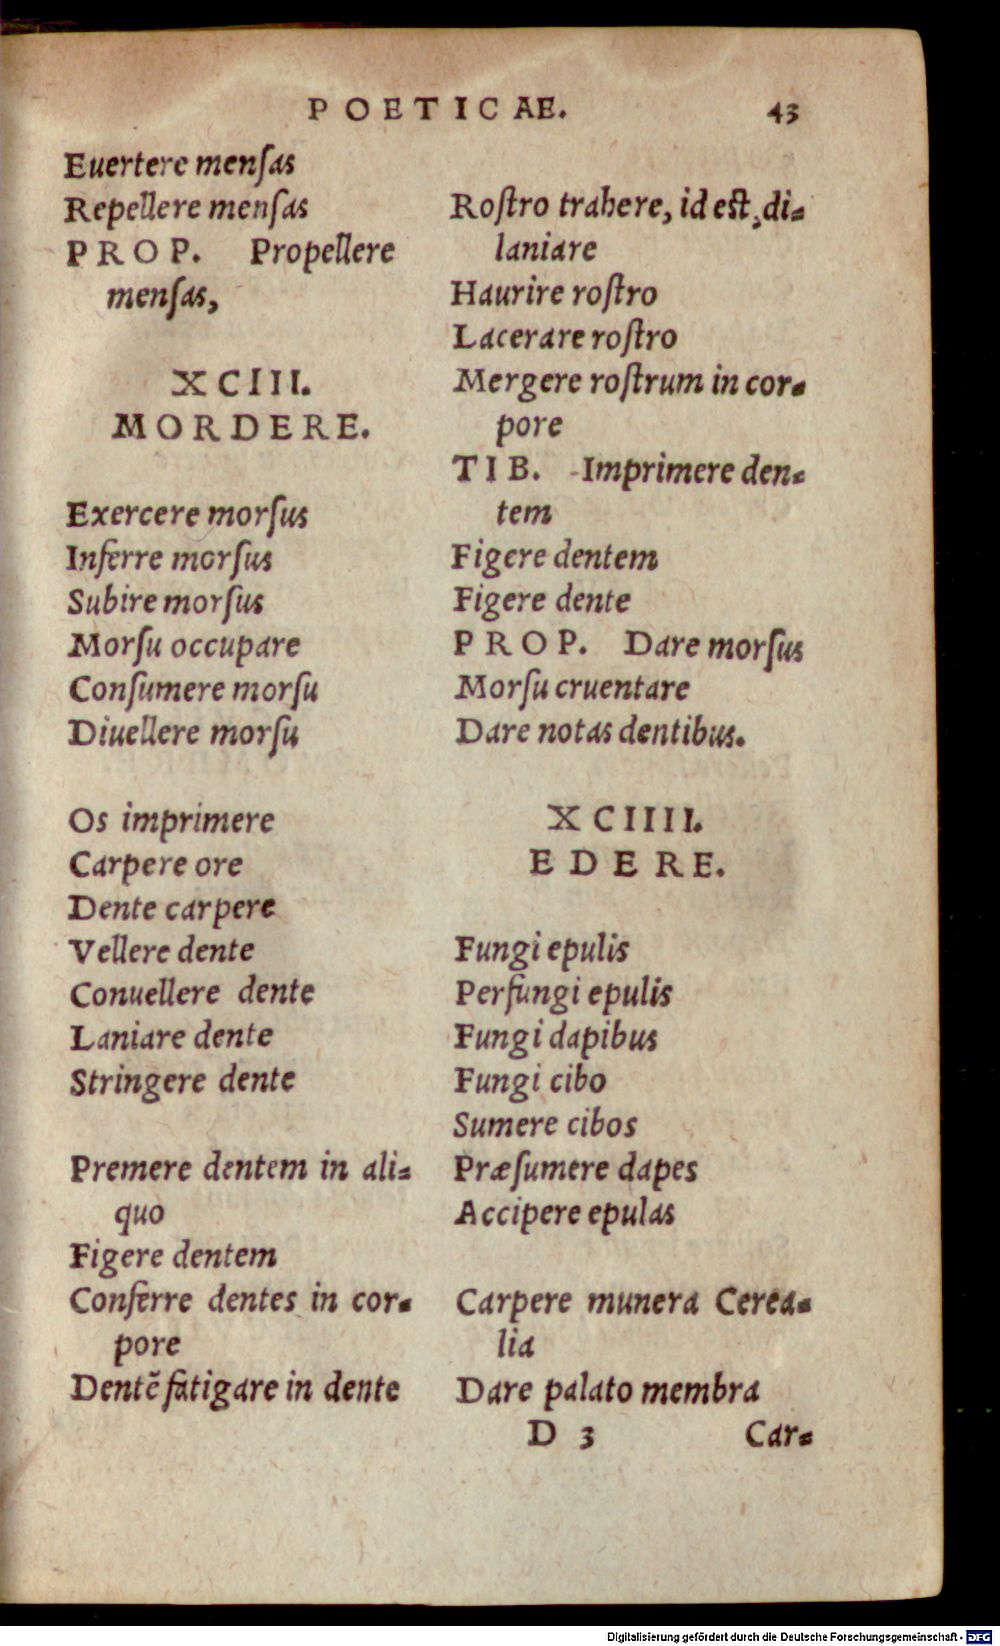 POETICAE. 43
Euertere menſas
Repellere menſas
PROP. Propellere
menſas,
XCIII.
MORDERE.
Exercere morſus
Inferre morſus
Subire morſus
Morſu occupare
Conſumere morſu
Diuellere morſu
Os imprimere
Carpere ore
Dente carpere
Vellere dente
Conuellere dente
Laniare dente
Stringere dente
Premere dentem in ali-
quo
Figere dentem
Conferre dentes in cor-
pore
Dentē fatigare in dente
Roſtro trahere, id eſt, di-
laniare
Haurire roſtro
Lacerare roſtro
Mergere roſtrum in cor-
pore
TIB. Imprimere den-
tem
Figere dentem
Figere dente
PROP. Dare morſus
Morſu cruentare
Dare notas dentibus.
XCIIII.
EDERE.
Fungi epulis
Perfungi epulis
Fungi dapibus
Fungi cibo
Sumere cibos
Præſumere dapes
Accipere epulas
Carpere munera Cerea-
lia
Dare palato membra
D 3 Car-
Digitalisierung gefördert durch die Deutsche Forschungsgemeinschaft - DFG